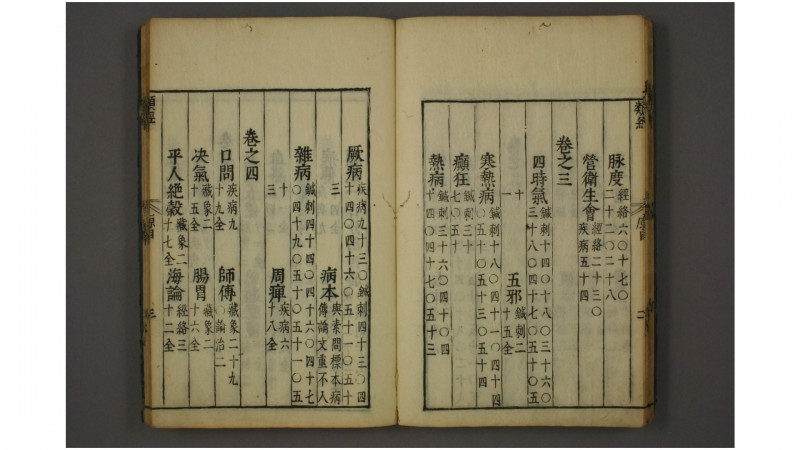 脉度經絡六〇十七〇二十二〇二十八
營衛生會經絡二十三〇疾病五十四
卷之三
四時氣鍼刺十四〇十八〇三十六〇三十八〇四十七〇五十
十一
五邪鍼刺二十五全
寒熱病鍼刺十八〇四十一〇四十四〇五十〇五十三〇五十四
癲狂鍼刺三十七〇五十
熱病鍼刺三十六〇四十〇四十〇四十七〇五十三
厥病疾病九十三〇鍼刺四十三〇四十四〇四十六〇五十一〇五十三
病本與素問標本病傳論文重不入
雜病鍼刺四十四〇四十六〇四十七〇四十九〇五十〇五十一〇五十
周痺疾病六十八全
卷之四
口問疾病九十九全
師傳藏象二十九〇論治二
决氣藏象二十五全
腸胃藏象二十六全
平人絕穀藏象二十七全
海論經絡三十二全
類經
原目
三
類經
原目
二